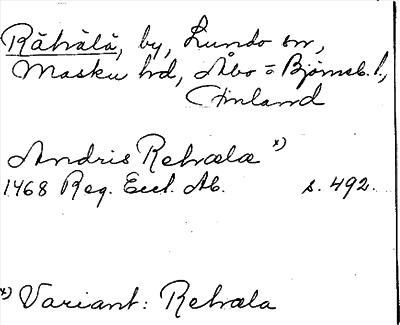 Rähälä, by, Lundo sn,
Masku hd, Åbo = Björneb. l.,
Finland
Andris Rehælæ x)
1468 Reg. Eccl. Ab. s. 492.
x) Variant: Rehæla